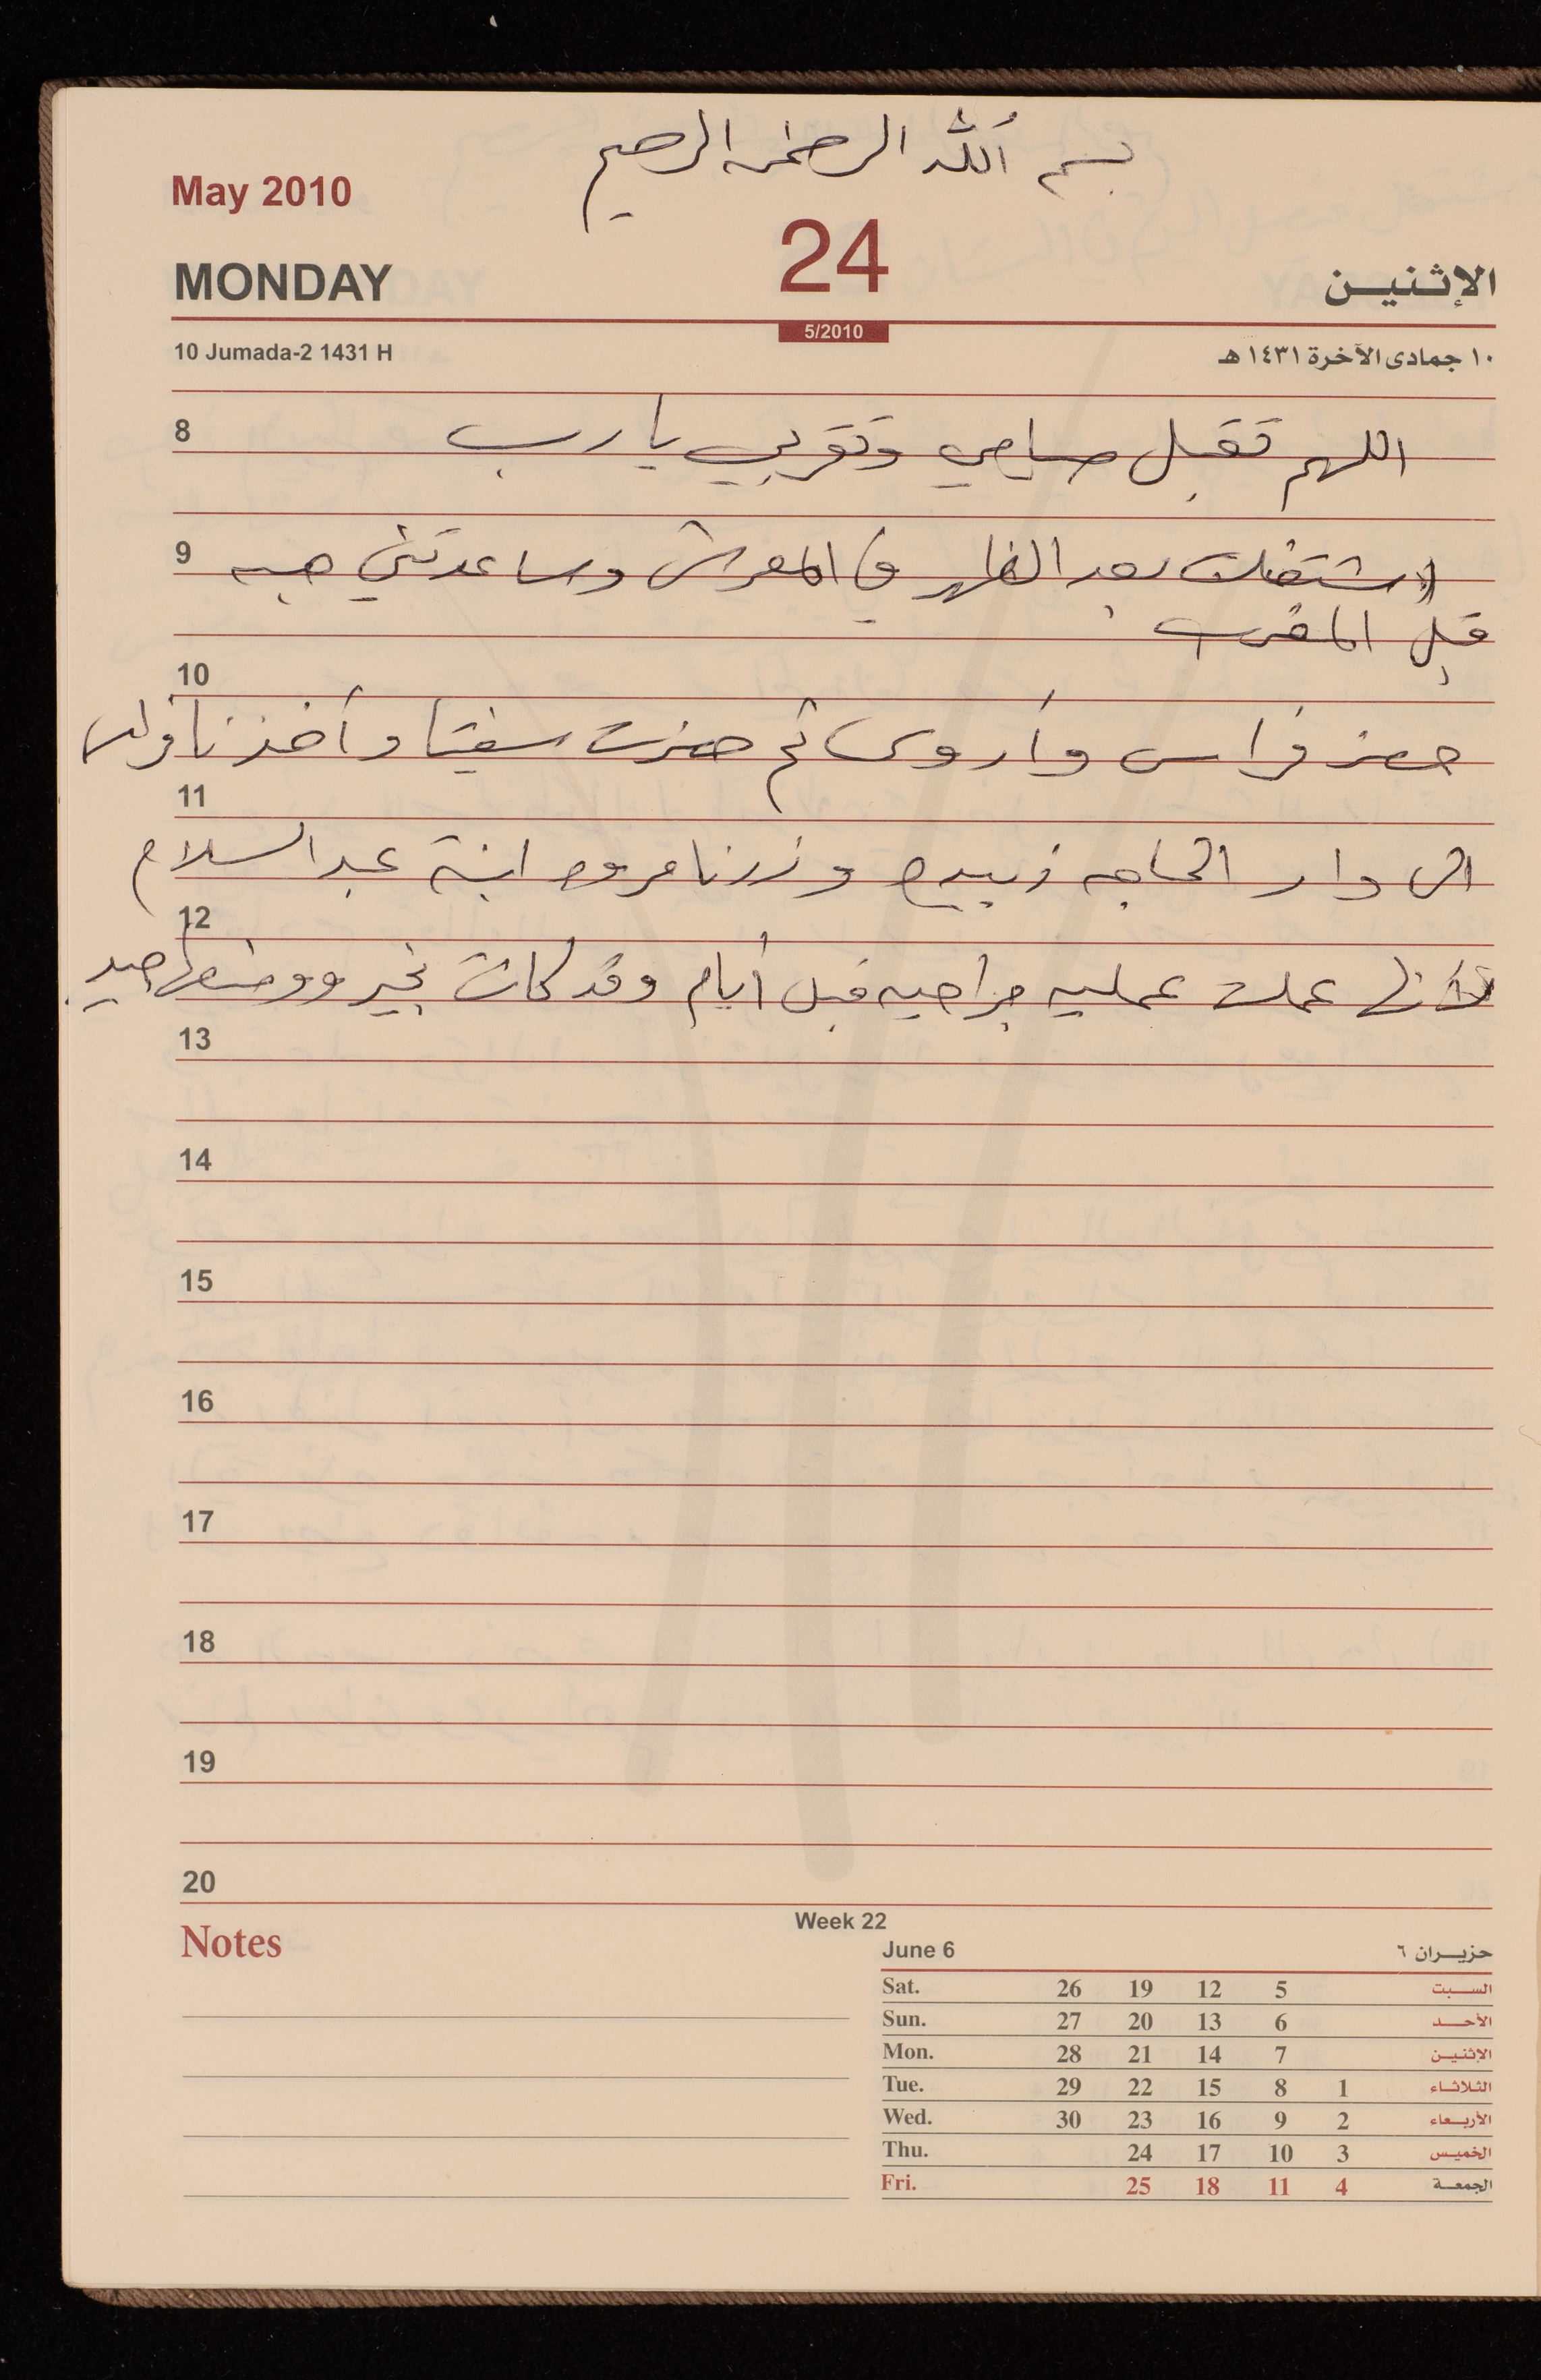 بسم الله الرحمن الرحيم
May 2010
MONDAY 24 الإثنين
5/2010
10 Jumada-2 1431 H ١٠ جمادى الآخرة ١٤٣١ هـ
8 اللهم تقبل صيامي وتقربي يا رب
9 اشتغلت بعد الظهر في المعرش وساعدتني هبه
قبل المغرب
10
حضر فراس وأروى ثم حضرت سفيتا وأخذنا فراس
11
الى دار الحاجه زبيده وزرنا مروه ابنة عبد السلام
12
لأنها عملت عمليه جراحيه قبل أيام وقد كانت بخير ووضعها جيد.
13
14
15
16
17
18
19
20
Notes
Week 22
June 6 حزيران ٦
Sat. 26 19 12 5 السبت
Sun. 27 20 13 6 الأحد
Mon. 28 21 14 7 الإثنين
Tue. 29 22 15 8 1 الثلاثاء
Wed. 30 23 16 9 2 الأربعاء
Thu. 24 17 10 3 الخميس
Fri. 25 18 11 4 الجمعة